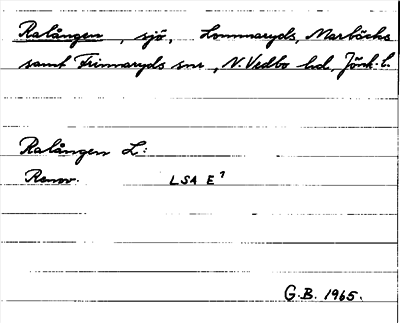 Ralången, sjö, Lommaryds, Marbäcks
samt Frinnaryds snr, N. Vedbo hd, Jönk. l.
Ralången L:
Renov. LSA E 7
G.B. 1965.